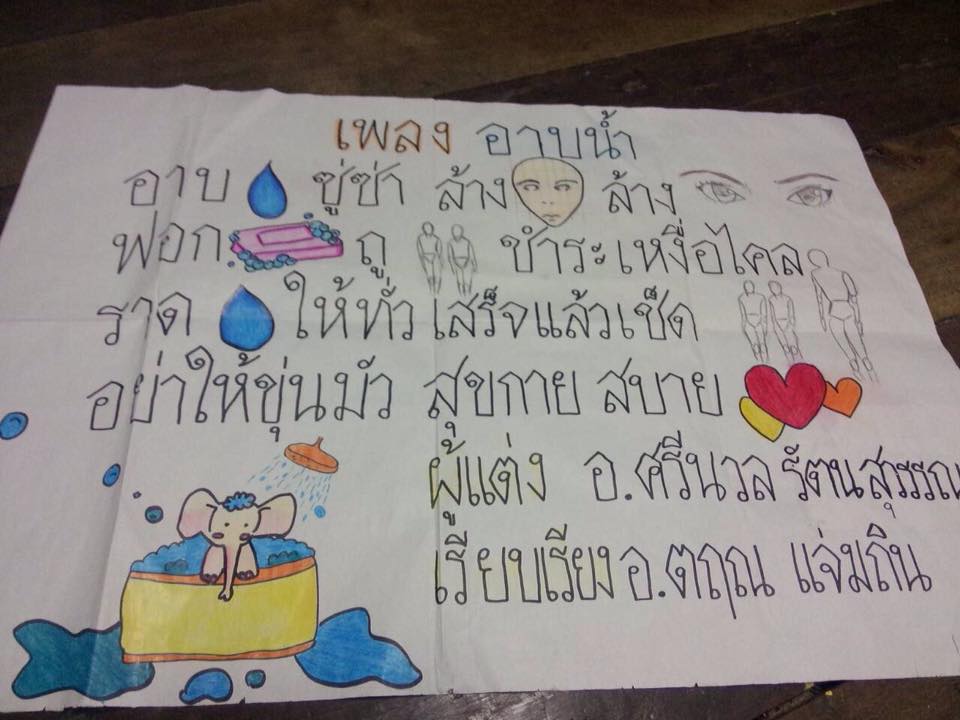 เพลง อาบน้ำ
อาบ ซู่ซ่า ล้าง ล้าง
ฟอก ถู ชำระเหงื่อไคล
ราด ให้ทั่ว เสร็จแล้วเช็ด
อย่าให้ขุ่นมัว สุขกาย สบาย
ผู้แต่ง อ.ศรีนวล รัตนสุวรรณ
เรียบเรียง อ.ตฤณ แจ่มถิน